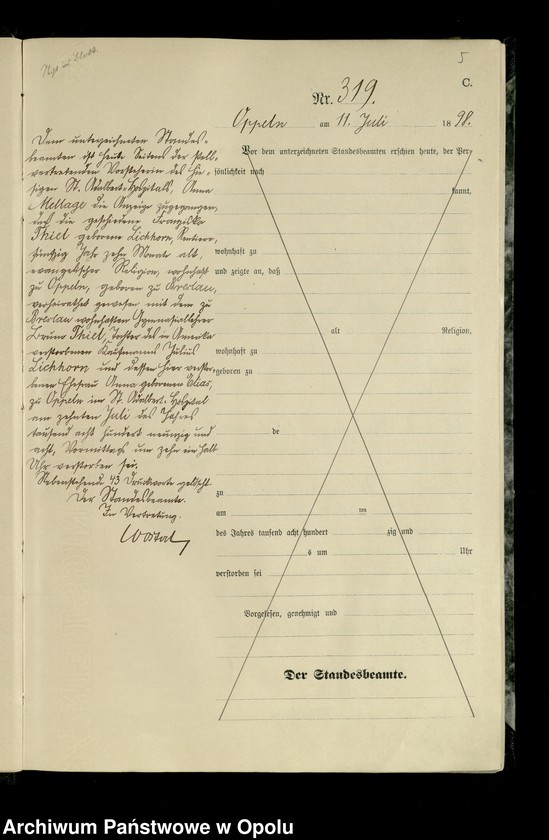 5
C.
Nr. 319.
Oppeln am 11. Juli 1898.
Dem unterzeichneten Standes-
beamten ist heute Seitens der stell-
vertretenden Vorsteherin des hie-
sigen St. Adalbert-Hospitals, Anna
Mellage die Anzeige zugegangen,
daß die geschiedene Franziska
Thiel geborene Eichhorn, Rentiere,
fünfzig Jahr zehn Monate alt,
evangelischer Religion, wohnhaft
zu Oppeln, geboren zu Breslau,
verheirathet gewesen mit dem zu
Breslau wohnhaften Gymnasiallehrer
Bruno Thiel, Tochter des in Amerika
verstorbenen Kaufmanns Julius
Eichhorn und dessen hier verstor-
benen Ehefrau Anna geborenen Elias,
zu Oppeln im St. Adalbert-Hospital
am zehnten Juli des Jahres
tausend acht hundert neunzig und
acht, Vormittags um zehn ein halb
Uhr verstorben sei.
Nebenstehende 43 Druckworte gelöscht
Der Standesbeamte.
In Vertretung.
Vor dem unterzeichneten Standesbeamten erschien heute, der Per-
sönlichkeit nach
kannt,
wohnhaft zu
und zeigte an, daß
alt Religion,
wohnhaft zu
geboren zu
de
zu
am ten
des Jahres tausend acht hundert zig und
s um Uhr
verstorben sei
Vorgelesen, genehmigt und
Der Standesbeamte.
Archiwum Państwowe w Opolu